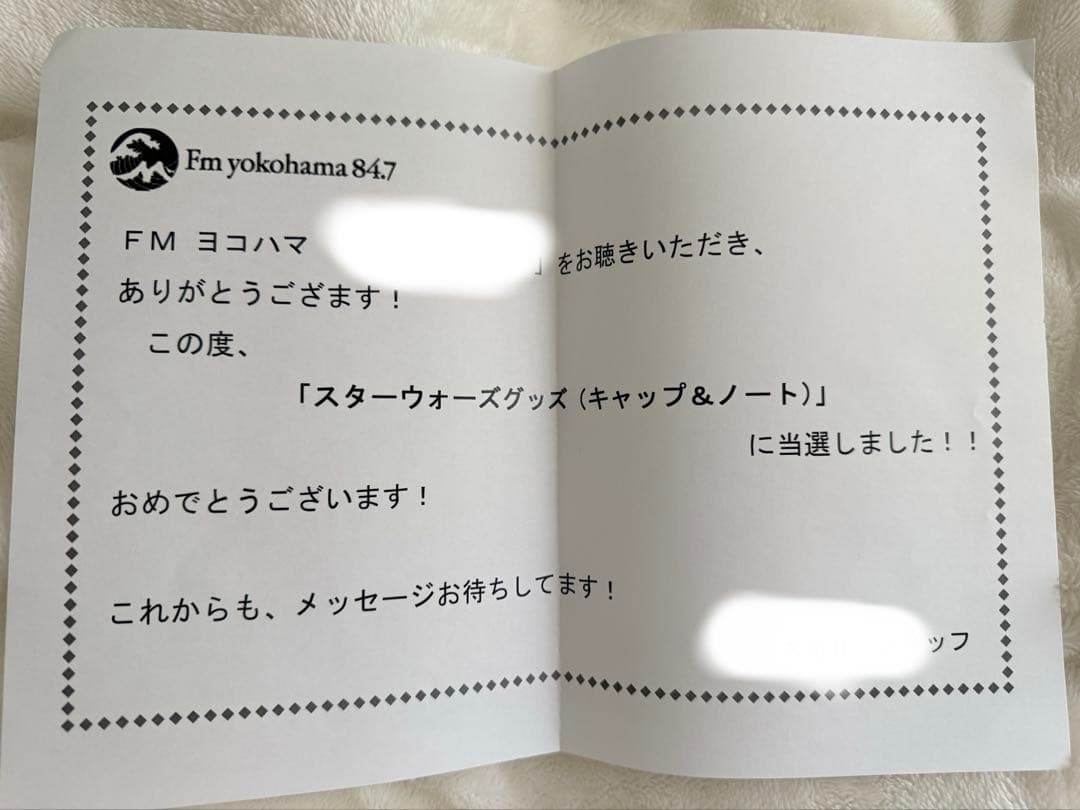 Fm yokohama 84.7
FM ヨコハマ 」をお聴きいただき、
ありがとうござます!
この度、
「スターウォーズグッズ(キャップ&ノート)」
に当選しました!!
おめでとうございます!
これからも、メッセージお待ちしてます!
ッフ